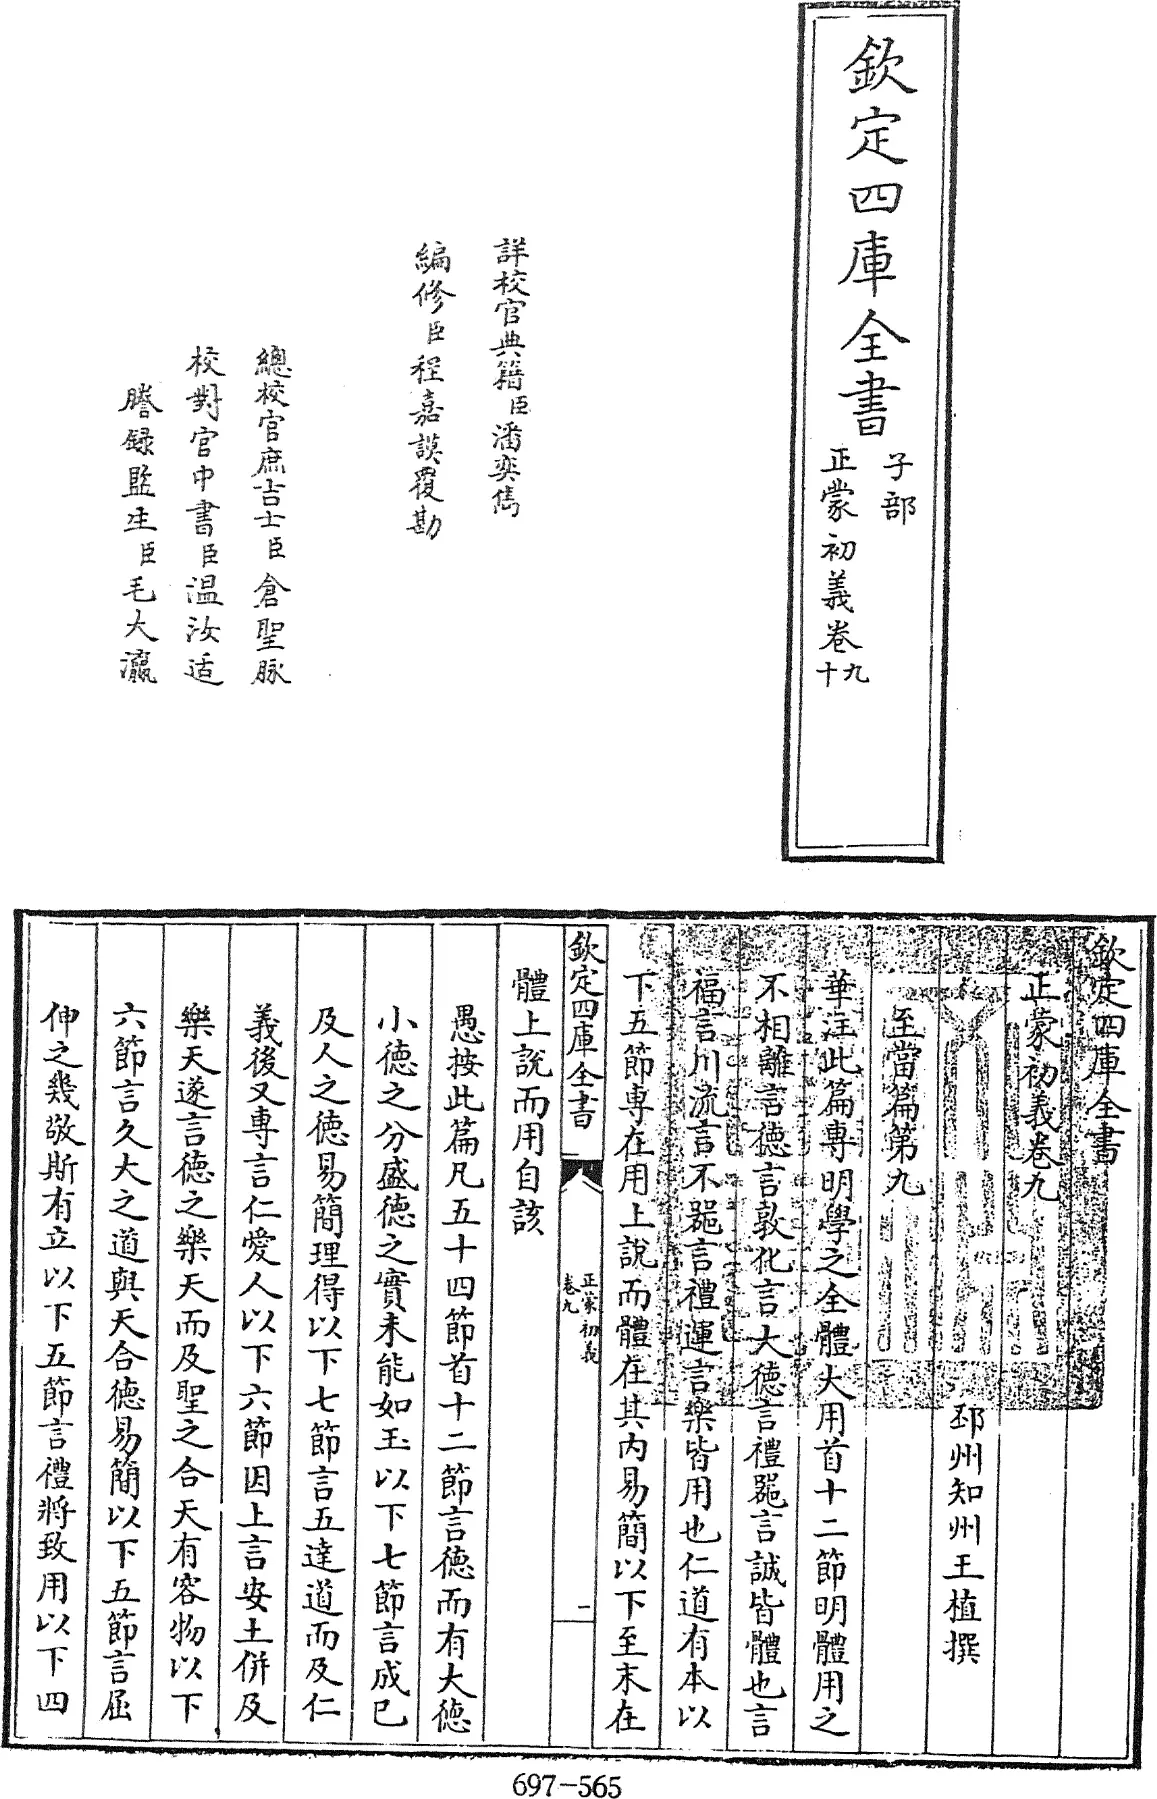 欽定四庫全書
子部
正蒙初義卷
九
十
詳校官典籍臣潘奕雋
編修臣程嘉謨覆勘
總校官庶吉士臣倉聖脈
校對官中書臣溫汝适
謄録監生臣毛大瀛
欽定四庫全書
正蒙初義卷九
邳州知州王植撰
至當篇第九
華注此篇專明學之全體大用首十二節明體用之
不相離言德言敦化言大德言禮器言誠皆體也言
福言川流言不器言禮運言樂皆用也仁道有本以
下五節專在用上說而體在其内易簡以下至末在
欽定四庫全書
正蒙初義
卷九
一
體上說而用自該
愚按此篇凡五十四節首十二節言德而有大德
小德之分盛德之實未能如玉以下七節言成已
及人之德易簡理得以下七節言五達道而及仁
義後又專言仁愛人以下六節因上言安土併及
樂天遂言德之樂天而及聖之合天有容物以下
六節言久大之道與天合德易簡以下五節言屈
伸之幾敬斯有立以下五節言禮將致用以下四
697-565